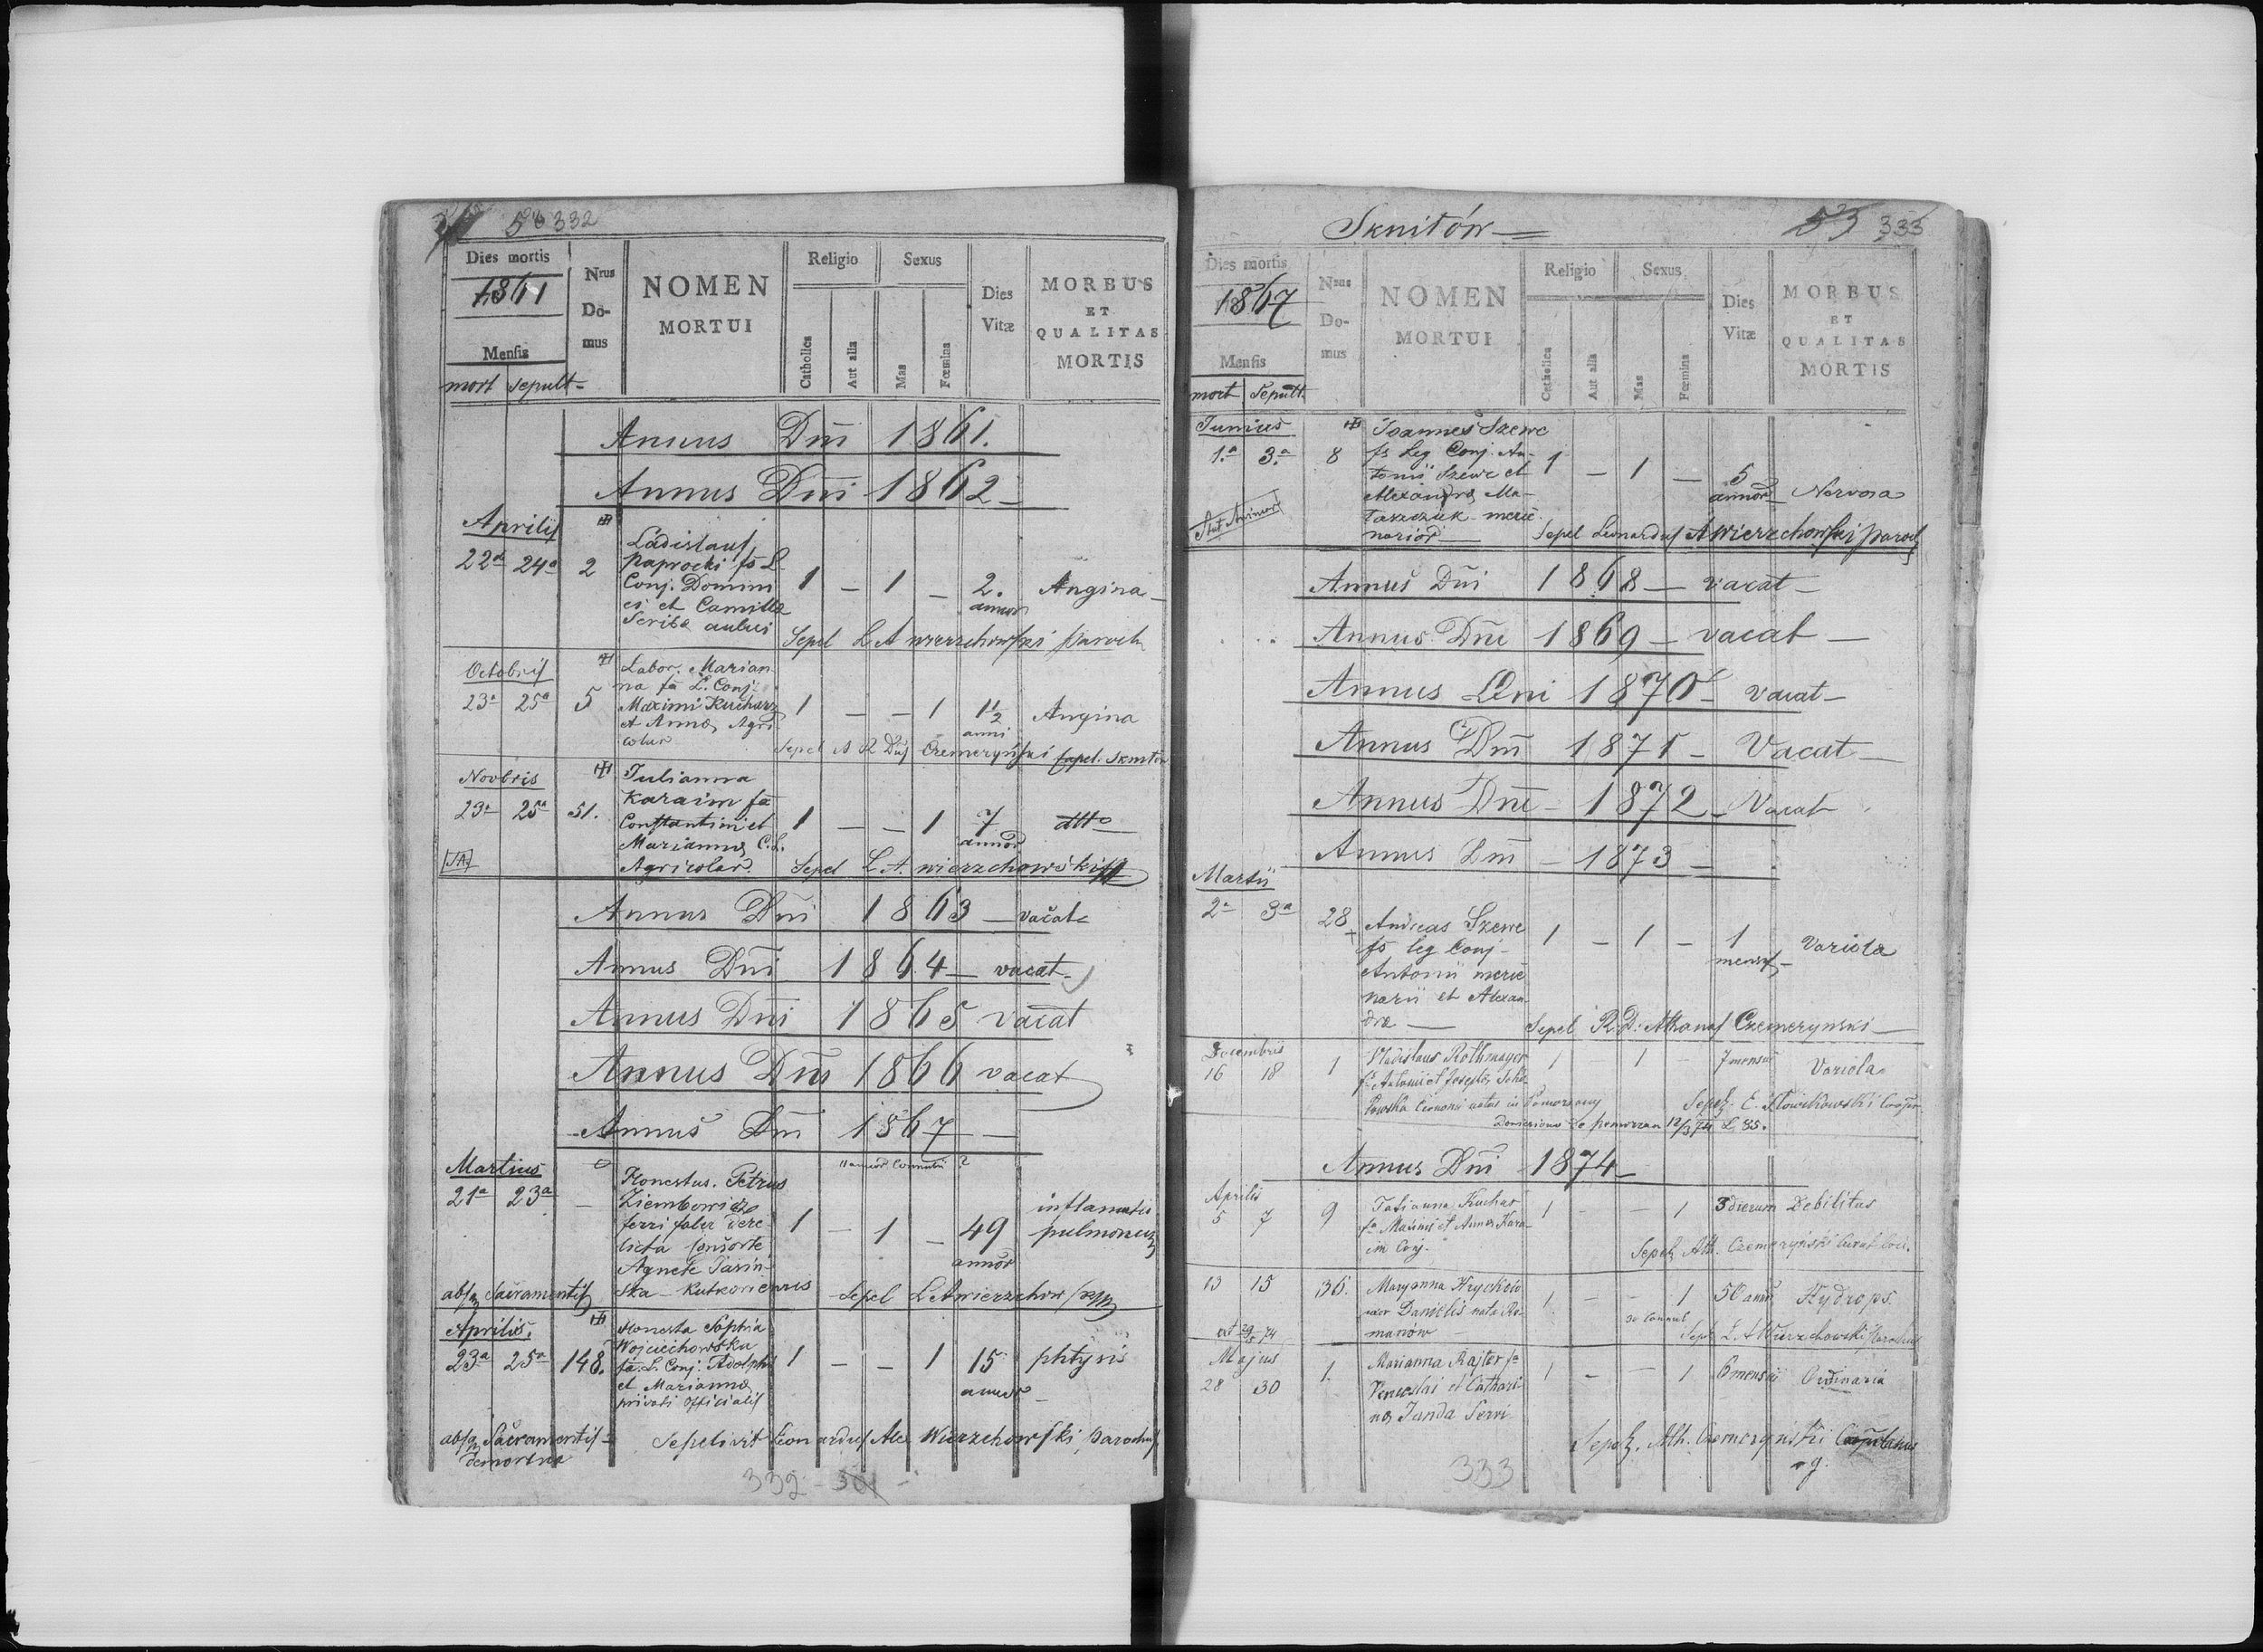 332
Dies mortis
1861
Mensis
mort sepult
Nrus
Do-
mus
NOMEN
MORTUI
Religio
Catholica
Aut alia
Sexus
Mas
Fœmina
Dies
Vitæ
MORBUS
ET
QUALITAS
MORTIS
Annus Dni 1861.
Annus Dni 1862
Aprilis
22a 24a 2
Ladislaus
Paprocki fs L.
Conj. Domini
ci et Camillæ
Scribæ aulici
1 – 1 – 2. annor
Angina
Sepel L A Wierzchowski Paroch
Octobris
23a 25a 5
Labor. Marian
na fa L. Conj.
Maximi Kucharz
et Annæ Agri
colar
1 – – 1 1½ anni
Angina
Sepel A R Dus Czemeryński Capel. Sknitów
Novbris
23a 25a 51.
Julianna
Karaim fa
Constantini et
Mariannæ C. L.
Agricolar.
1 – – 1 7 annor
dtto
Sepel L. A. Wierzchowski
Annus Dni 1863 – vacat
Annus Dni 1864 – vacat
Annus Dni 1865 vacat
Annus Dni 1866 vacat
Annus Dni 1867
Martius
21a 23a –
Honestus Petrus
Ziembowicz
ferri faber dere
licta consorte
Agnete
ska
1 – 1 – 49 annor
inflamatio
pulmonum
absq Sacramentis
Sepel L A Wierzchow
Aprilis.
23a 25a 148.
Honesta Sophia
Wojciechowska
fa. L. Conj. Adolphi
et Mariannæ
privati officialis
1 – – 1 15 annor
phtysis
absq Sacramentis
demortua
Sepelivit Leonardus Alex Wierzchowski Parochus
332
Sknitów
53 333
Dies mortis
1867
Mensis
mort Sepult
Nrus
Do-
mus
NOMEN
MORTUI
Religio
Catholica
Aut alia
Sexus
Mas
Fœmina
Dies
Vitæ
MORBUS
ET
QUALITAS
MORTIS
Junius
1.a 3.a 8
Joannes Szewc
fs Leg Conj. An-
tonii Szewc et
Alexandræ Ma-
taszczuk merce
narior
1 – 1 – 5 annor
Nervosa
Sepel Leonardus A Wierzchowski Paroch
Annus Dni 1868 – vacat –
Annus Dni 1869 – vacat –
Annus Dni 1870 – vacat –
Annus Dni 1871 – Vacat –
Annus Dni 1872 – Vacat
Annus Dni – 1873 –
Martii
2a 3a 28
Andreas Szewc
fs leg Conj
Antonii merce
narii et Alexan
dræ
1 – 1 – 1 mensis
Variola
Sepel R. D. Athanas Czemerynski
Decembris
16 18 1
Vladislaus Rothmayer
fs Antonii et Josephæ
natus in Pomorzany
1 1 – 7 mensi
Variola
Sepel. E. Słowikowski Cooper.
Doniesiono do Pomorzan 12/3 74 L 85.
Annus Dni 1874
Aprilis
5 7 9
Tatianna Kuchar
fa Maximi et Annæ Kara-
im Conj.
1 – – 1 3 dierum Debilitas
Sepel. Ath. Czemeryński
13 15 36.
Maryanna Hryckow
uxor Danielis nata Ro-
manów
1 – – 1 50 annor Hydrops.
Sepel. L. A Wierzchowski Parochus
Majus
28 30 1.
Marianna Rajter fa
Venceslai et Cathari-
næ Janda Servi
1 – – 1 6 mensii Ordinaria
Sepel. Ath. Czemeryński Capellanus
r g.
333